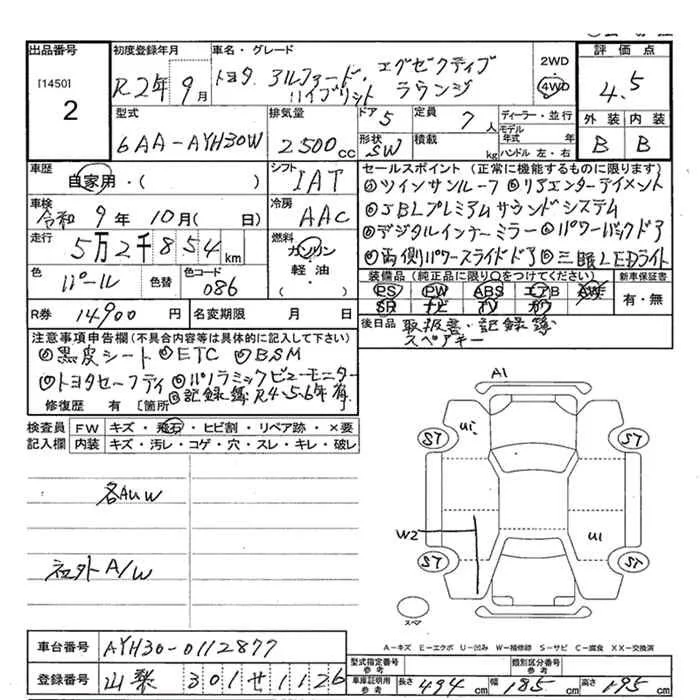 出品番号
[1450]
2
初度登録年月
R2年9月
車名・グレード
トヨタ アルファード・エグゼクティブ
ハイブリット ラウンジ
2WD
4WD
評価点
4.5
外装 内装
B B
型式
6AA-AYH30W
排気量
2500cc
ドア 5
形状 SW
定員 7人
積載 kg
ディーラー・並行
モデル年式 年
ハンドル 左・右
車歴
自家用・( )
シフト
IAT
車検
令和9年10月( 日)
冷房
AAC
走行
5万2千854km
燃料
ガソリン
軽油・
色
パール
色替
色コード
086
R券 14900円
名変期限 月 日
セールスポイント(正常に機能するものに限ります)
①ツインサンルーフ ②リアエンターテイメント
③JBLプレミアムサウンドシステム
④デジタルインナーミラー ⑤パワーバックドア
⑥両側パワースライドドア ⑦三眼LEDライト
装備品(純正品に限り○をつけてください)
PS PW ABS エアB AW
SR ナビ TV カワ
新車保証書
有・無
後日品 取扱書・記録簿
スペアキー
注意事項申告欄(不具合内容等は具体的に記入して下さい)
黒皮シート ETC BSM
トヨタセーフティ パノラミックビューモニター
記録簿R4・5・6年有
修復歴 有 [箇所
検査員
記入欄
FW キズ・飛石・ヒビ割・リペア跡・×要
内装 キズ・汚レ・コゲ・穴・スレ・キレ・破レ
各AUW
社外A/W
A1
U1
ST
ST
W2
U1
ST
ST
スペア
A-キズ E-エクボ U-凹み W-補修跡 S-サビ C-腐食 XX-交換済
車台番号 AYH30-0112877
登録番号 山梨 301 せ 1126
型式指定番号
参考
類別区分番号
参考
車庫証明用
参考
長さ 494cm 幅 185cm 高さ 195cm